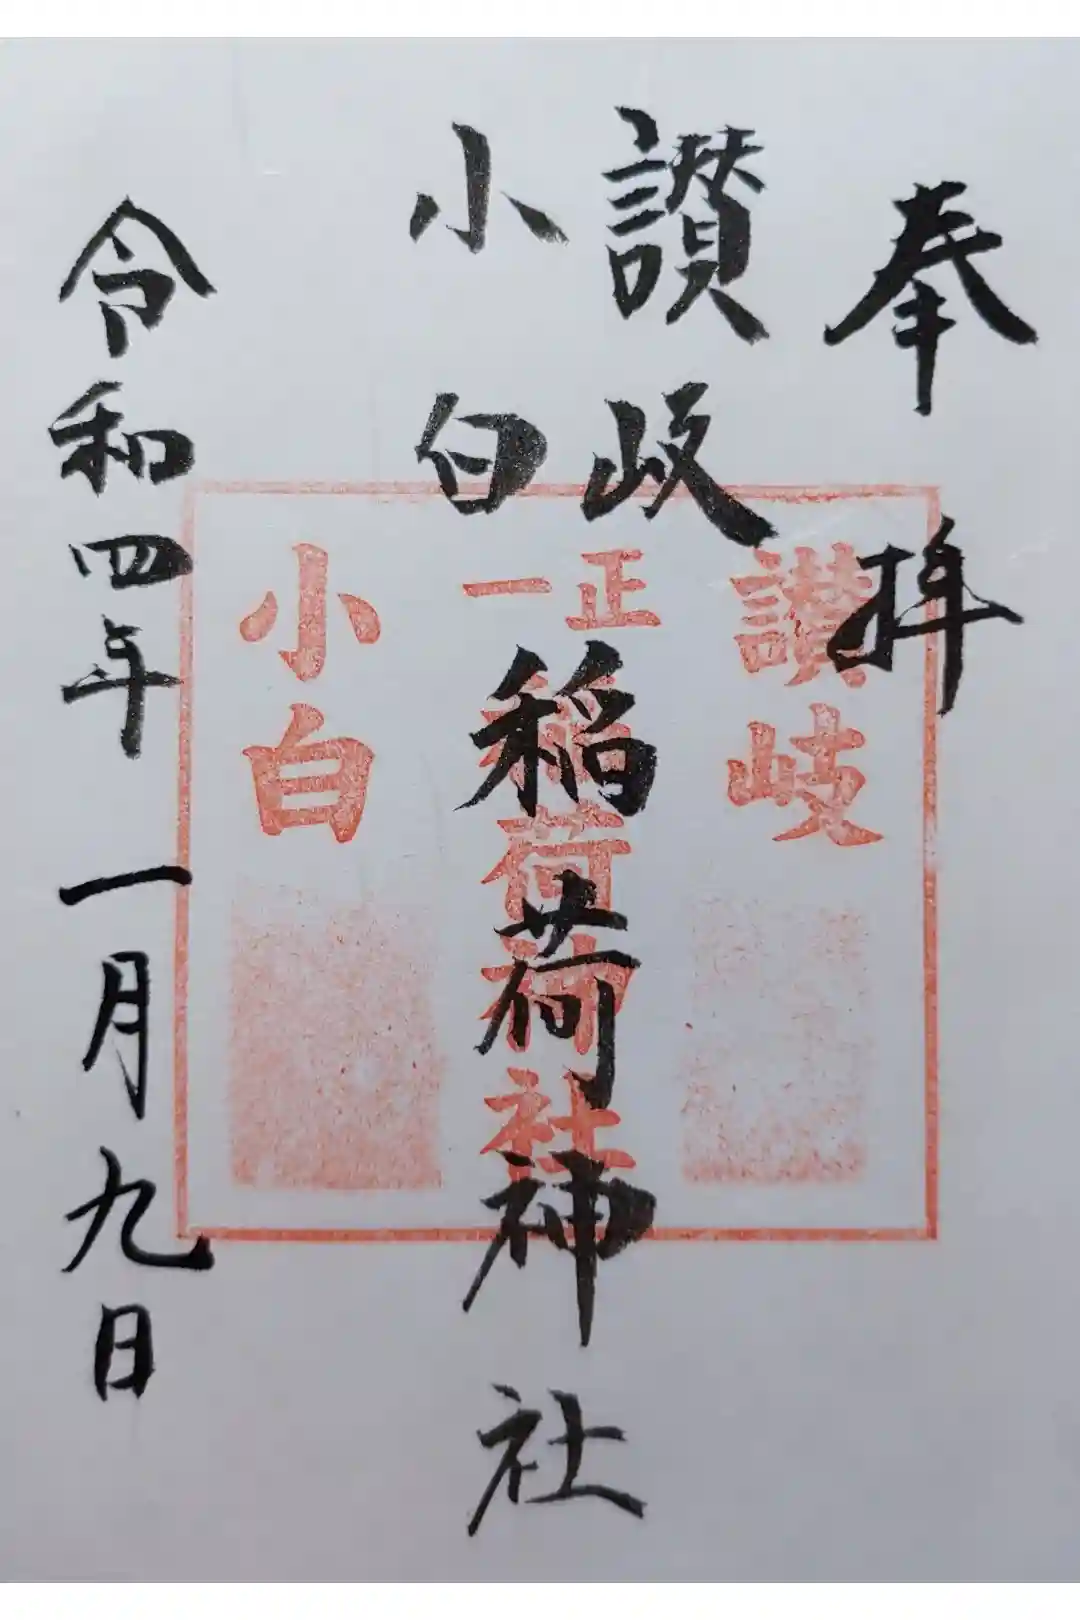 奉拝
讃岐
小白
稲荷神社
令和四年一月九日
讃岐
正一
稲荷神社
小白